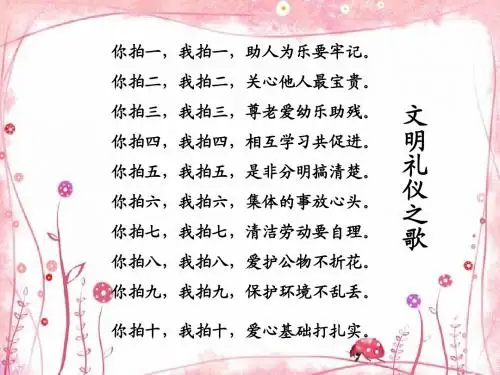 文明礼仪之歌
你拍一，我拍一，助人为乐要牢记。
你拍二，我拍二，关心他人最宝贵。
你拍三，我拍三，尊老爱幼乐助残。
你拍四，我拍四，相互学习共促进。
你拍五，我拍五，是非分明搞清楚。
你拍六，我拍六，集体的事放心头。
你拍七，我拍七，清洁劳动要自理。
你拍八，我拍八，爱护公物不折花。
你拍九，我拍九，保护环境不乱丢。
你拍十，我拍十，爱心基础打扎实。